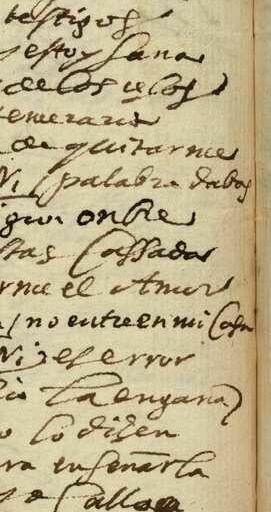 testigos
y estoy sana
de los çelos
temeraria
de quitarme
Ni palabra dabas
gun onbre
stas Cassada
rme el Amor
no entre en mi Casa
Ni es error
la engaña
o lo disen
ra ensenarla
Calle